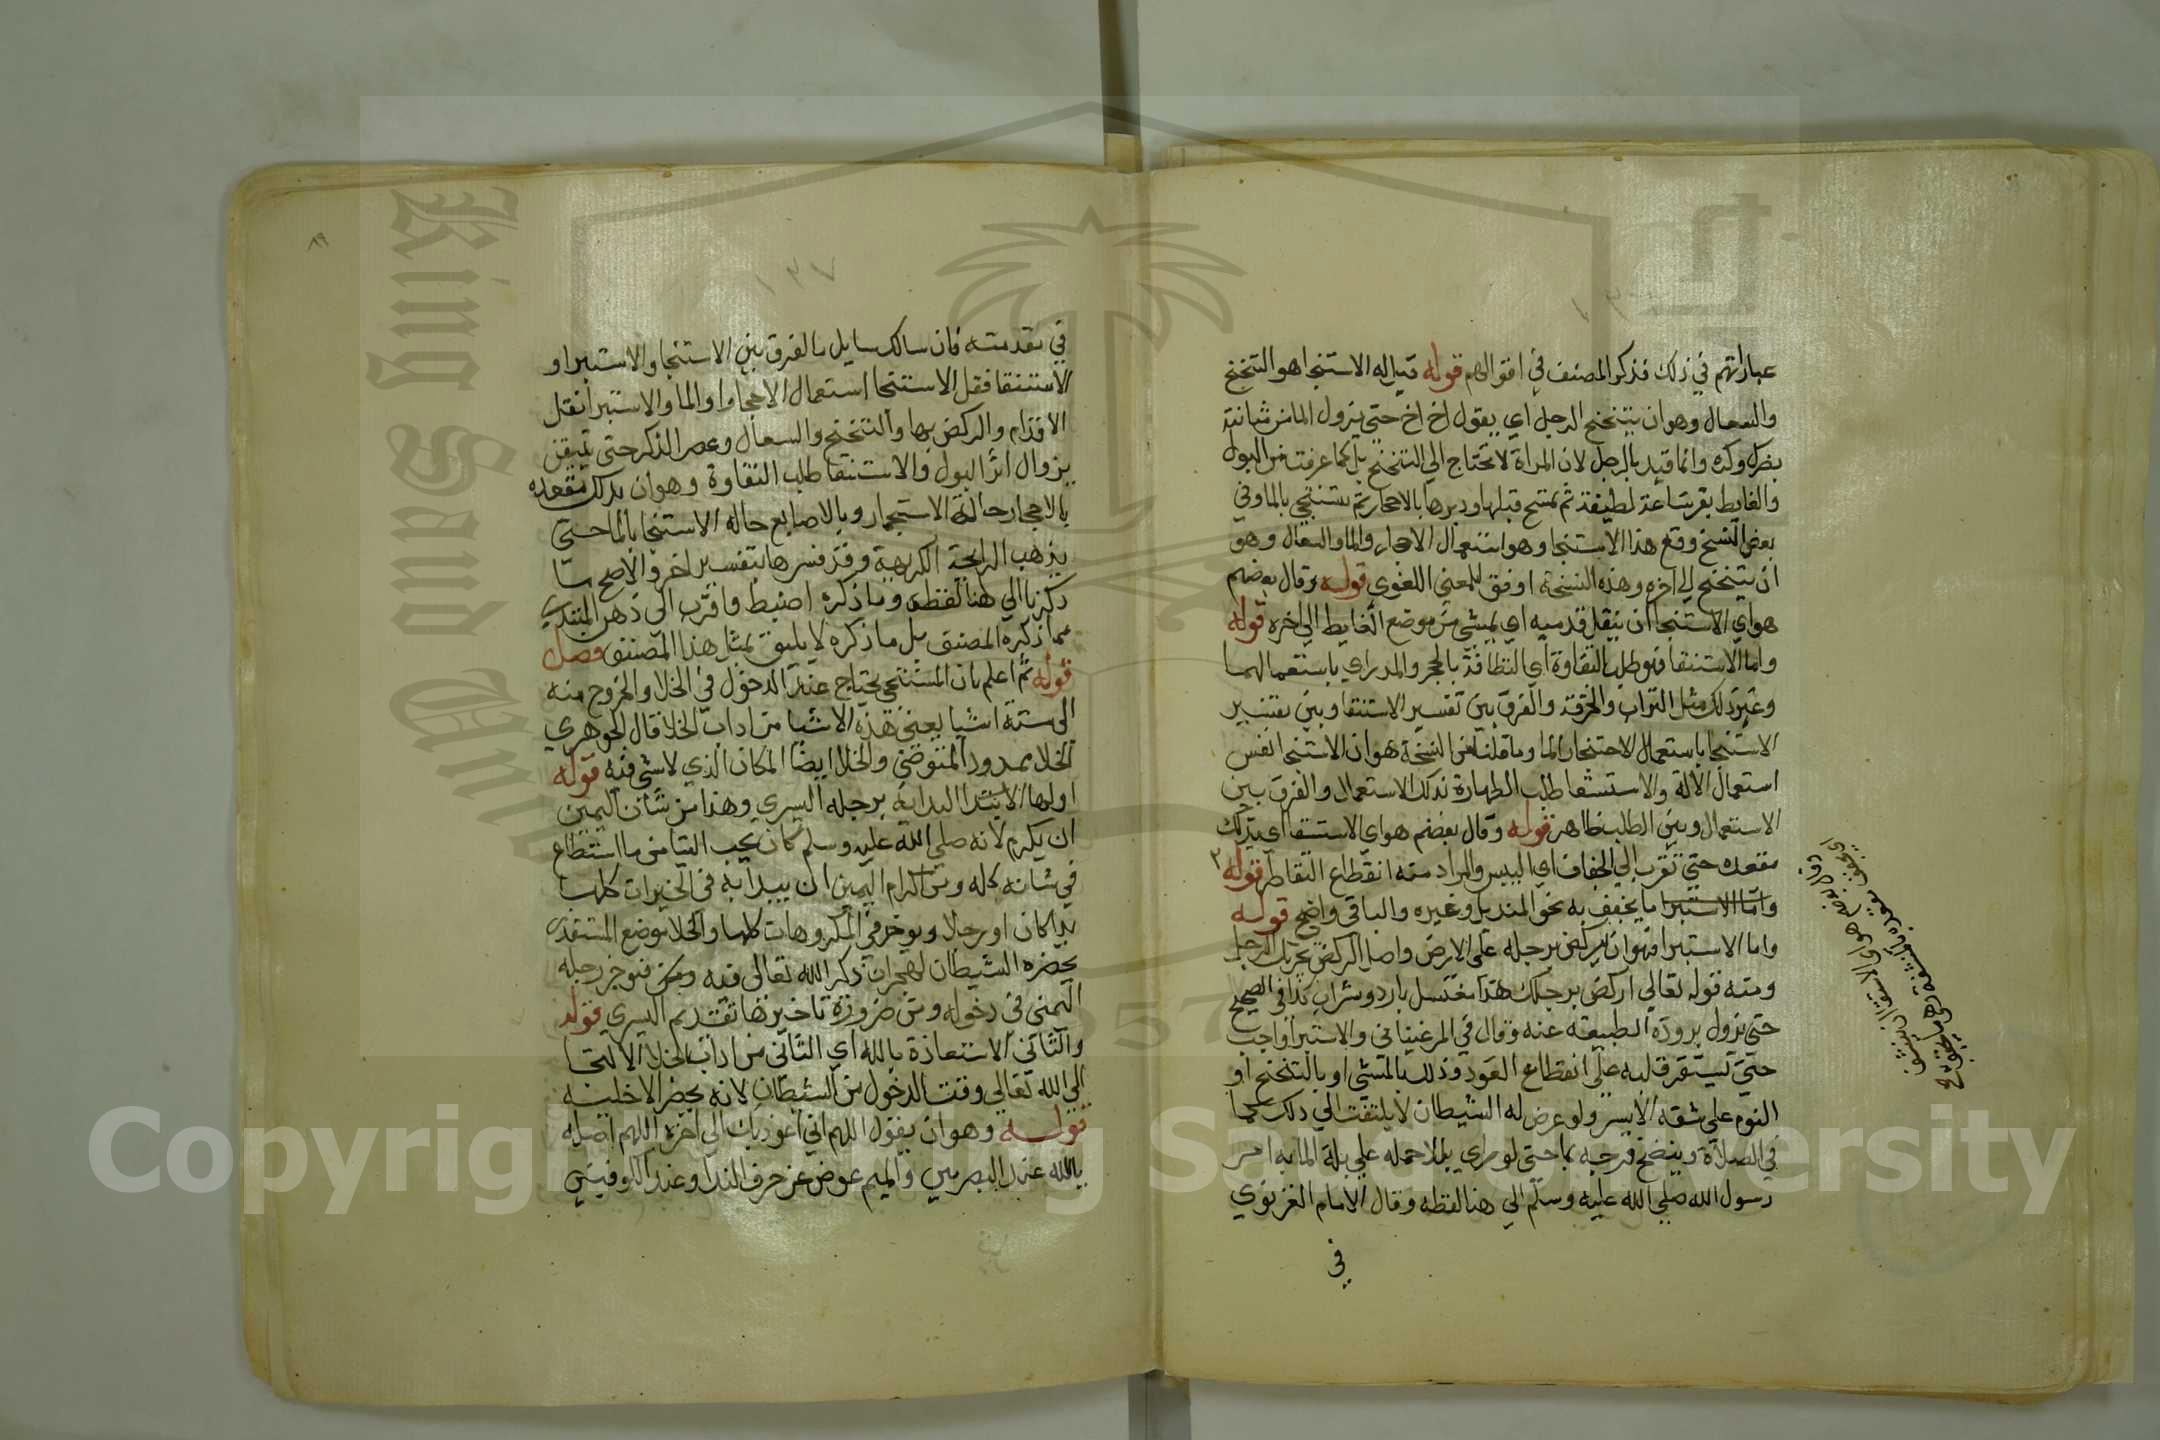 عباراتهم في ذلك فذكر المصنف في اقوالهم قوله قيل له الاستنجا هو التنحنح
والسعال وهو ان يتنحنح الرجل اي يقول اخ اخ حتى يزول الما من مثانته
بضرك وكره وانما قيد بالرجل لان المراة لا تحتاج الي التنحنح بل كما عرفت من البول
والغايط بقرب ساعة لطيفة ثم تمسح قبلها ودبرها بالاحجار ثم تستنجي بالما وفي
بعض النسخ وقع هذا الاستنجا وهو استعمال الاحجار والما والسعال وهو
ان يتنحنح الي اخره وهذه النسخة اوفق للمعني اللغوي قوله وقال بعضهم
هو اي الاستنجا ان ينقل قدميه اي يمشي من موضع الغايط الي اخره قوله
واما الاستنقا فهو طلب النقاوة اي النظافة بالحجر والمدر اي باستعمالهما
وغير ذلك مثل التراب والخرقة والفرق بين تفسير الاستنقا وبين تفسير
الاستنجا باستعمال الاحجار والما وما قلنا من النسخة هو ان الاستنجا نفس
استعمال الالة والاستنقا طلب الطهارة بذلك الاستعمال والفرق بين
الاستعمال وبين الطلب ظاهر قوله وقال بعضهم هو اي الاستنقا اي يدلك
مقعده حتي تقرب الي الجفاف اي اليبس والمراد منه انقطاع التقاطر قوله
واما الاستبرا ما يجفف به نحو المنديل وغيره والباقي واضح قوله
واما الاستبرا فهو ان يركض برجله على الارض واصل الركض تحريك الرجل
ومنه قوله تعالي اركض برجلك هذا مغتسل بارد وشراب كذا في الصحيح
حتي يزول برودة الطبيعة عنه وقال في المرغيناني والاستبرا واجب
حتي يستقر قلبه علي انقطاع العود وذلك بالمشي او بالتنحنح او
النوم علي شقه الايسر ولو عرض له الشيطان لا يلتفت الي ذلك كما
في الصلاة وينضح فرجه بما حتى لو راي بللا حمله علي بلة الما به امر
رسول الله صلي الله عليه وسلم الي هنا لفظه وقال الامام الغزنوي
في
٨٩
في مقدمته فان سالك سايل بالفرق بين الاستنجا والاستبرا و
الاستنقا فقل الاستنجا استعمال الاحجار او الما والاستبرا نقل
الاقدام والركض بها والتنحنح والسعال وعصر الذكر حتى يتيقن
بزوال اثر البول والاستنقا طلب النقاوة وهو ان يدلك مقعده
بالاحجار حالة الاستجمار وبالاصابع حالة الاستنجا بالما حتى
يذهب الرايحة الكريهة وقد فسرها بتفسير اخر والاصح ما
ذكرنا الي هنا لفظه وما ذكره اضبط واقرب الى ذهن المبتدي
مما ذكره المصنف بل ما ذكره لا يليق بمثل هذا المصنف فصل
قوله ثم اعلم بان المستنجي يحتاج عند الدخول في الخلا والخروج منه
الى ستة اشيا يعني هذه الاشيا من اداب الخلا قال الجوهري
الخلا ممدود المتوضئ والخلا ايضا المكان الذي لا شي فيه قوله
اولها الابتدا البداية برجله اليسري وهذا من شان اليمين
ان يكرم لانه صلي الله عليه وسلم كان يحب التيامن ما استطاع
في شانه كله ومن اكرام اليمين ان يبدا به في الخيرات كلها
يدا كان او رجلا ويوخر في المكروهات كلها والخلا موضع المستقذر
يحضره الشيطان لهجران ذكر الله تعالى فيه فيوخر رجله
اليمني في دخوله ومن ضرورة تاخيرها تقديم اليسري قوله
والثاني الاستعاذة بالله اي الثاني من اداب الخلا الالتجا
الي الله تعالي وقت الدخول من الشيطان لانه يحضر الاخلية
قوله وهو ان يقول اللهم اني اعوذ بك الي اخره اللهم اصله
يا الله عند البصريين والميم عوض عن حرف الندا وعند الكوفيين